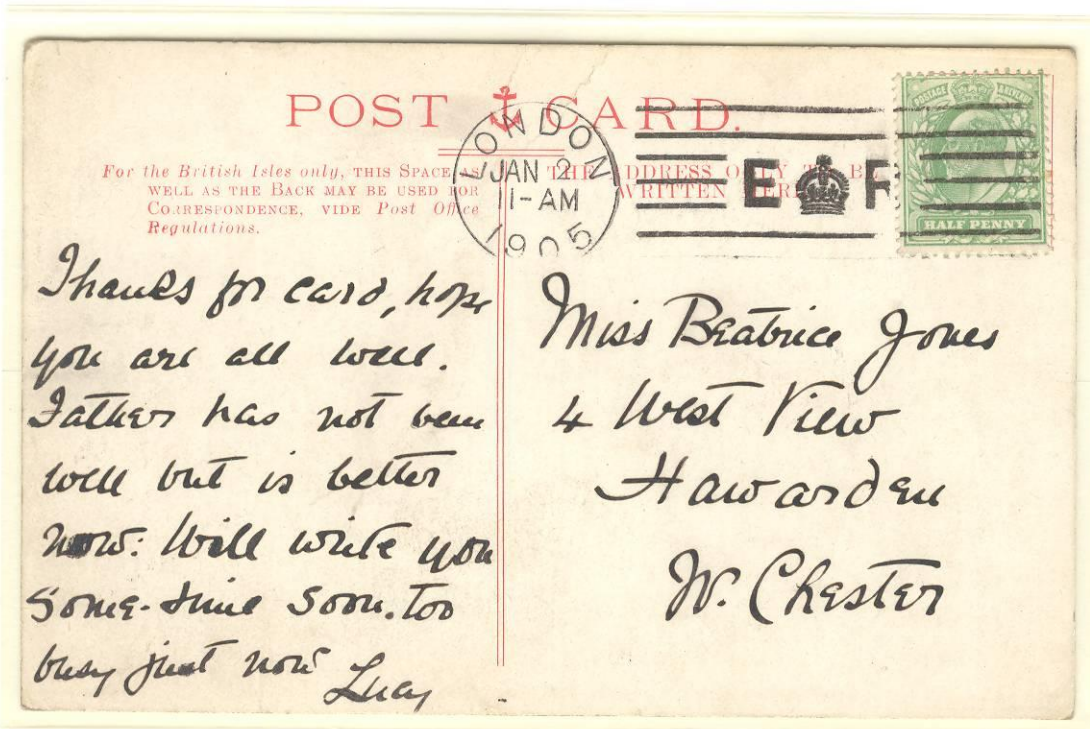 POST CARD.
For the British Isles only, THIS SPACE AS
WELL AS THE BACK MAY BE USED FOR
CORRESPONDENCE, VIDE Post Office
Regulations.
THE ADDRESS ONLY TO BE
WRITTEN HERE
LONDON
JAN 2
11-AM
1905
E R
POSTAGE & REVENUE
HALF PENNY
Thanks for card, hope
you are all well.
Father has not been
well but is better
now. Will write you
some-time soon. too
busy just now
Lucy
Miss Beatrice Jones
4 West View
Hawarden
Nr. Chester